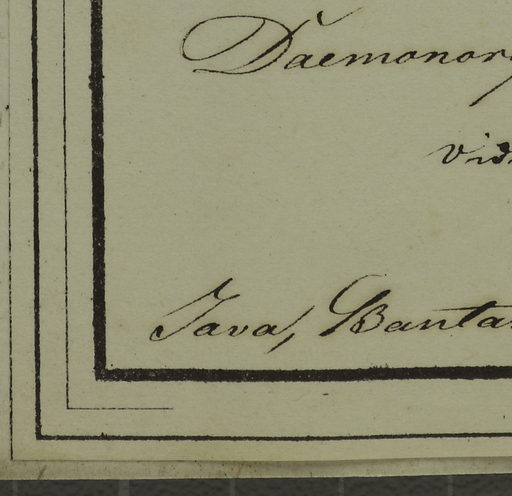 Daemonor
vid
Java, Banta